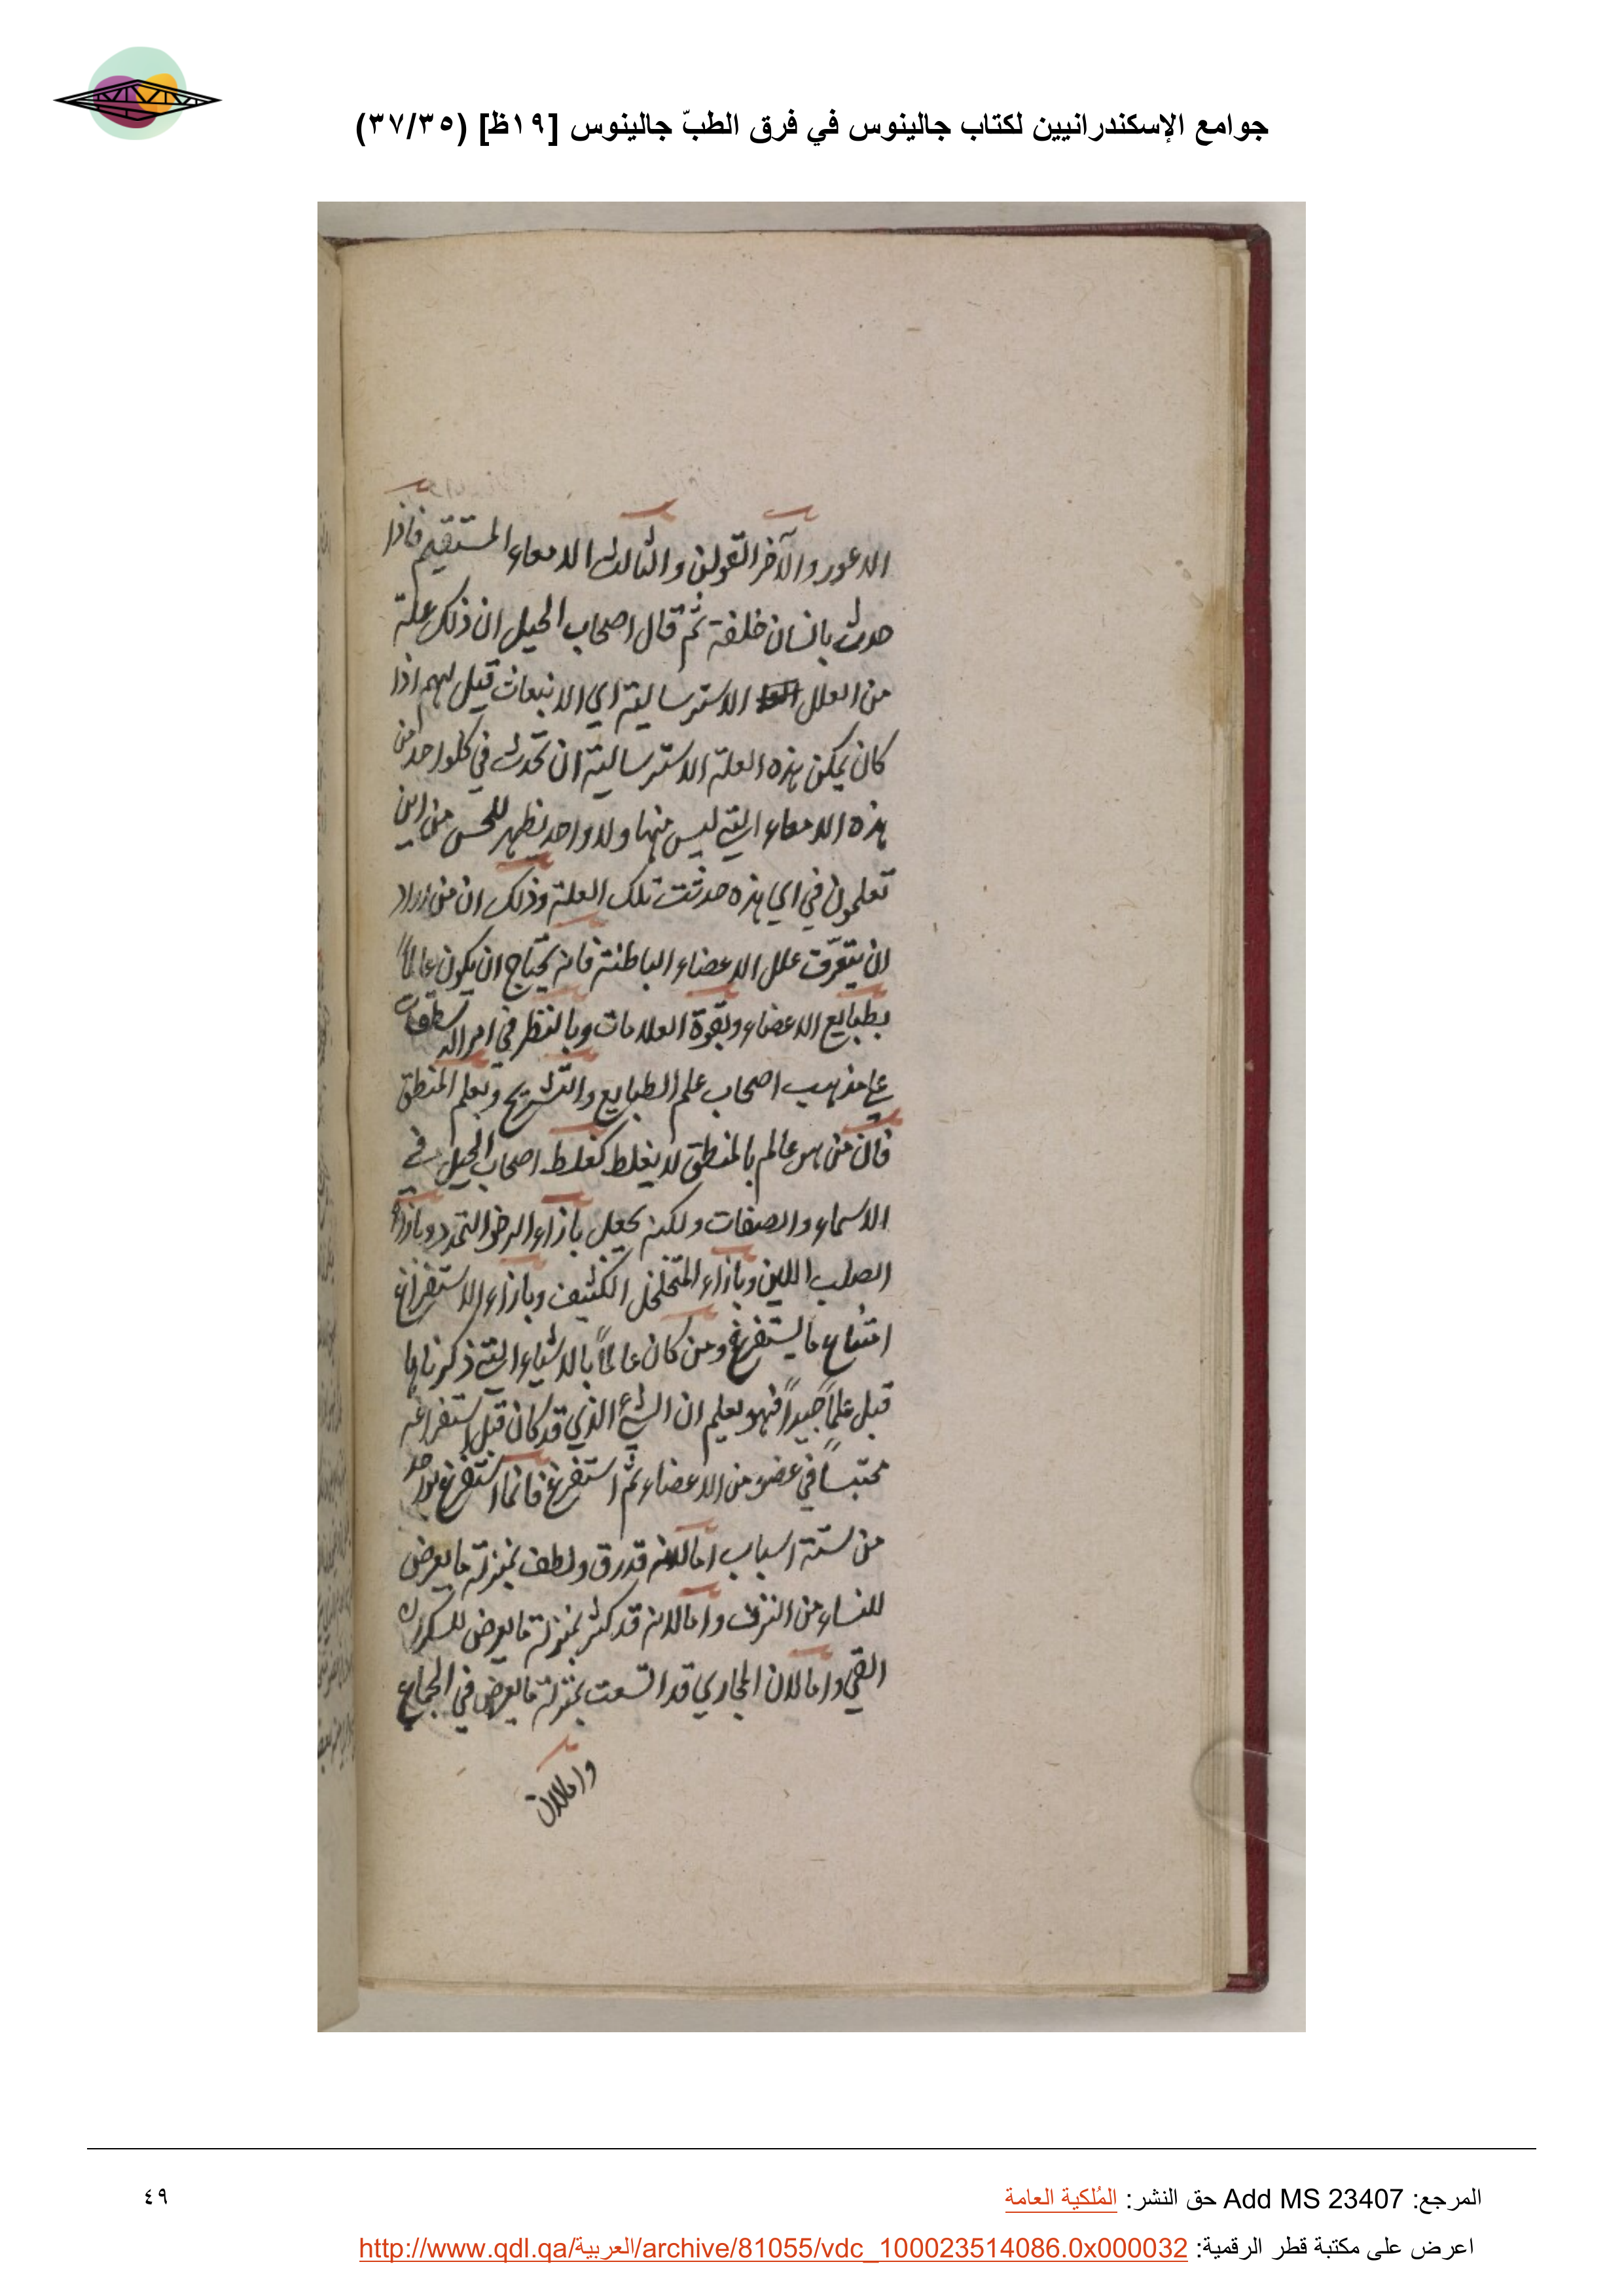 جوامع الإسكندرانيين لكتاب جالينوس في فرق الطبّ جالينوس [١٩ظ] (٣٧/٣٥)
الاعور والآخر القولن والثالث الامعاء المستقيم فاذا
حدث بانسان خلفة ثم قال اصحاب الحيل ان ذلك علة
من العلل الاسترسالية اي الانبعاث قيل لهم اذا
كان يمكن هذه العلة الاسترسالية ان تحدث في كلواحد من
هذه الامعاء التي ليس منها ولا واحد يظهر للحس من اين
تعلمون في اي هذه حدثت تلك العلة وذلك ان من اراد
ان يتعرّف علل الاعضاء الباطنة فانه يحتاج ان يكون عالماً
بطبايع الاعضاء وبقوة العلامات وبالنظر في امر الاسطقسات
على مذهب اصحاب علم الطبايع والتشريح وبعلم المنطق
فان من هو عالم بالمنطق لا يغلط كغلط اصحاب الحيل في
الاسماء والصفات ولكنه يجعل بازاء الرخو التمدد وبازاء
الصلب اللين وبازاء المتخلخل الكثيف وبازاء الاستفراغ
امتناع ما يستفرغ ومن كان عالماً بالاشياء التي ذكرناها
قبل علماً جيداً فهو يعلم ان الشيء الذي قد كان قبل استفراغه
محتبساً في عضو من الاعضاء ثم استفرغ فانما استفرغ لواحد
من ستة اسباب اما لانه قد رق ولطف بمنزلة ما يعرض
للنساء من النزف واما لانه قد كثر بمنزلة ما يعرض للسكران
القي واما لان المجاري قد اتسعت بمنزلة ما يعرض في الجماع
واما لان
المرجع: Add MS 23407 حق النشر: المُلكية العامة
٤٩
اعرض على مكتبة قطر الرقمية: http://www.qdl.qa/العربية/archive/81055/vdc_100023514086.0x000032